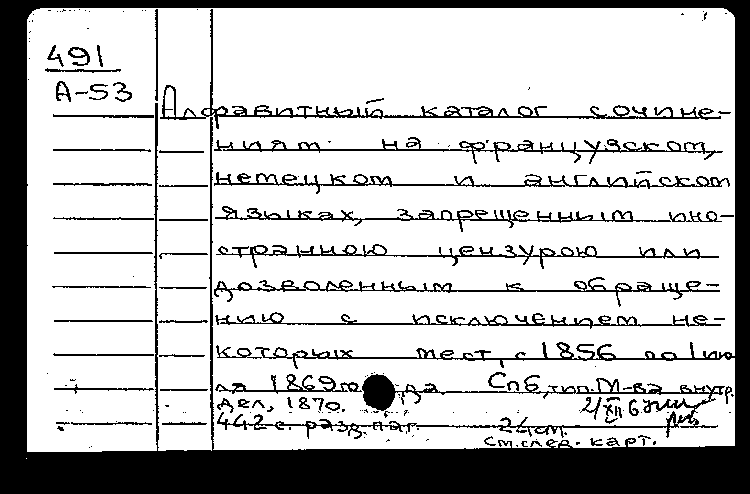 491
А-53
Алфавитный каталог сочине-
ниям на французском,
немецком и английском
языках, запрещенным ино-
странною цензурою или
дозволенным к обраще-
нию с исключением не-
которых мест, с 1856 по 1 ию
ля 1869 го да. Спб, тип. М-ва внутр.
дел, 1870.
442 с. разд. паг. 24 см.
см. след. карт.